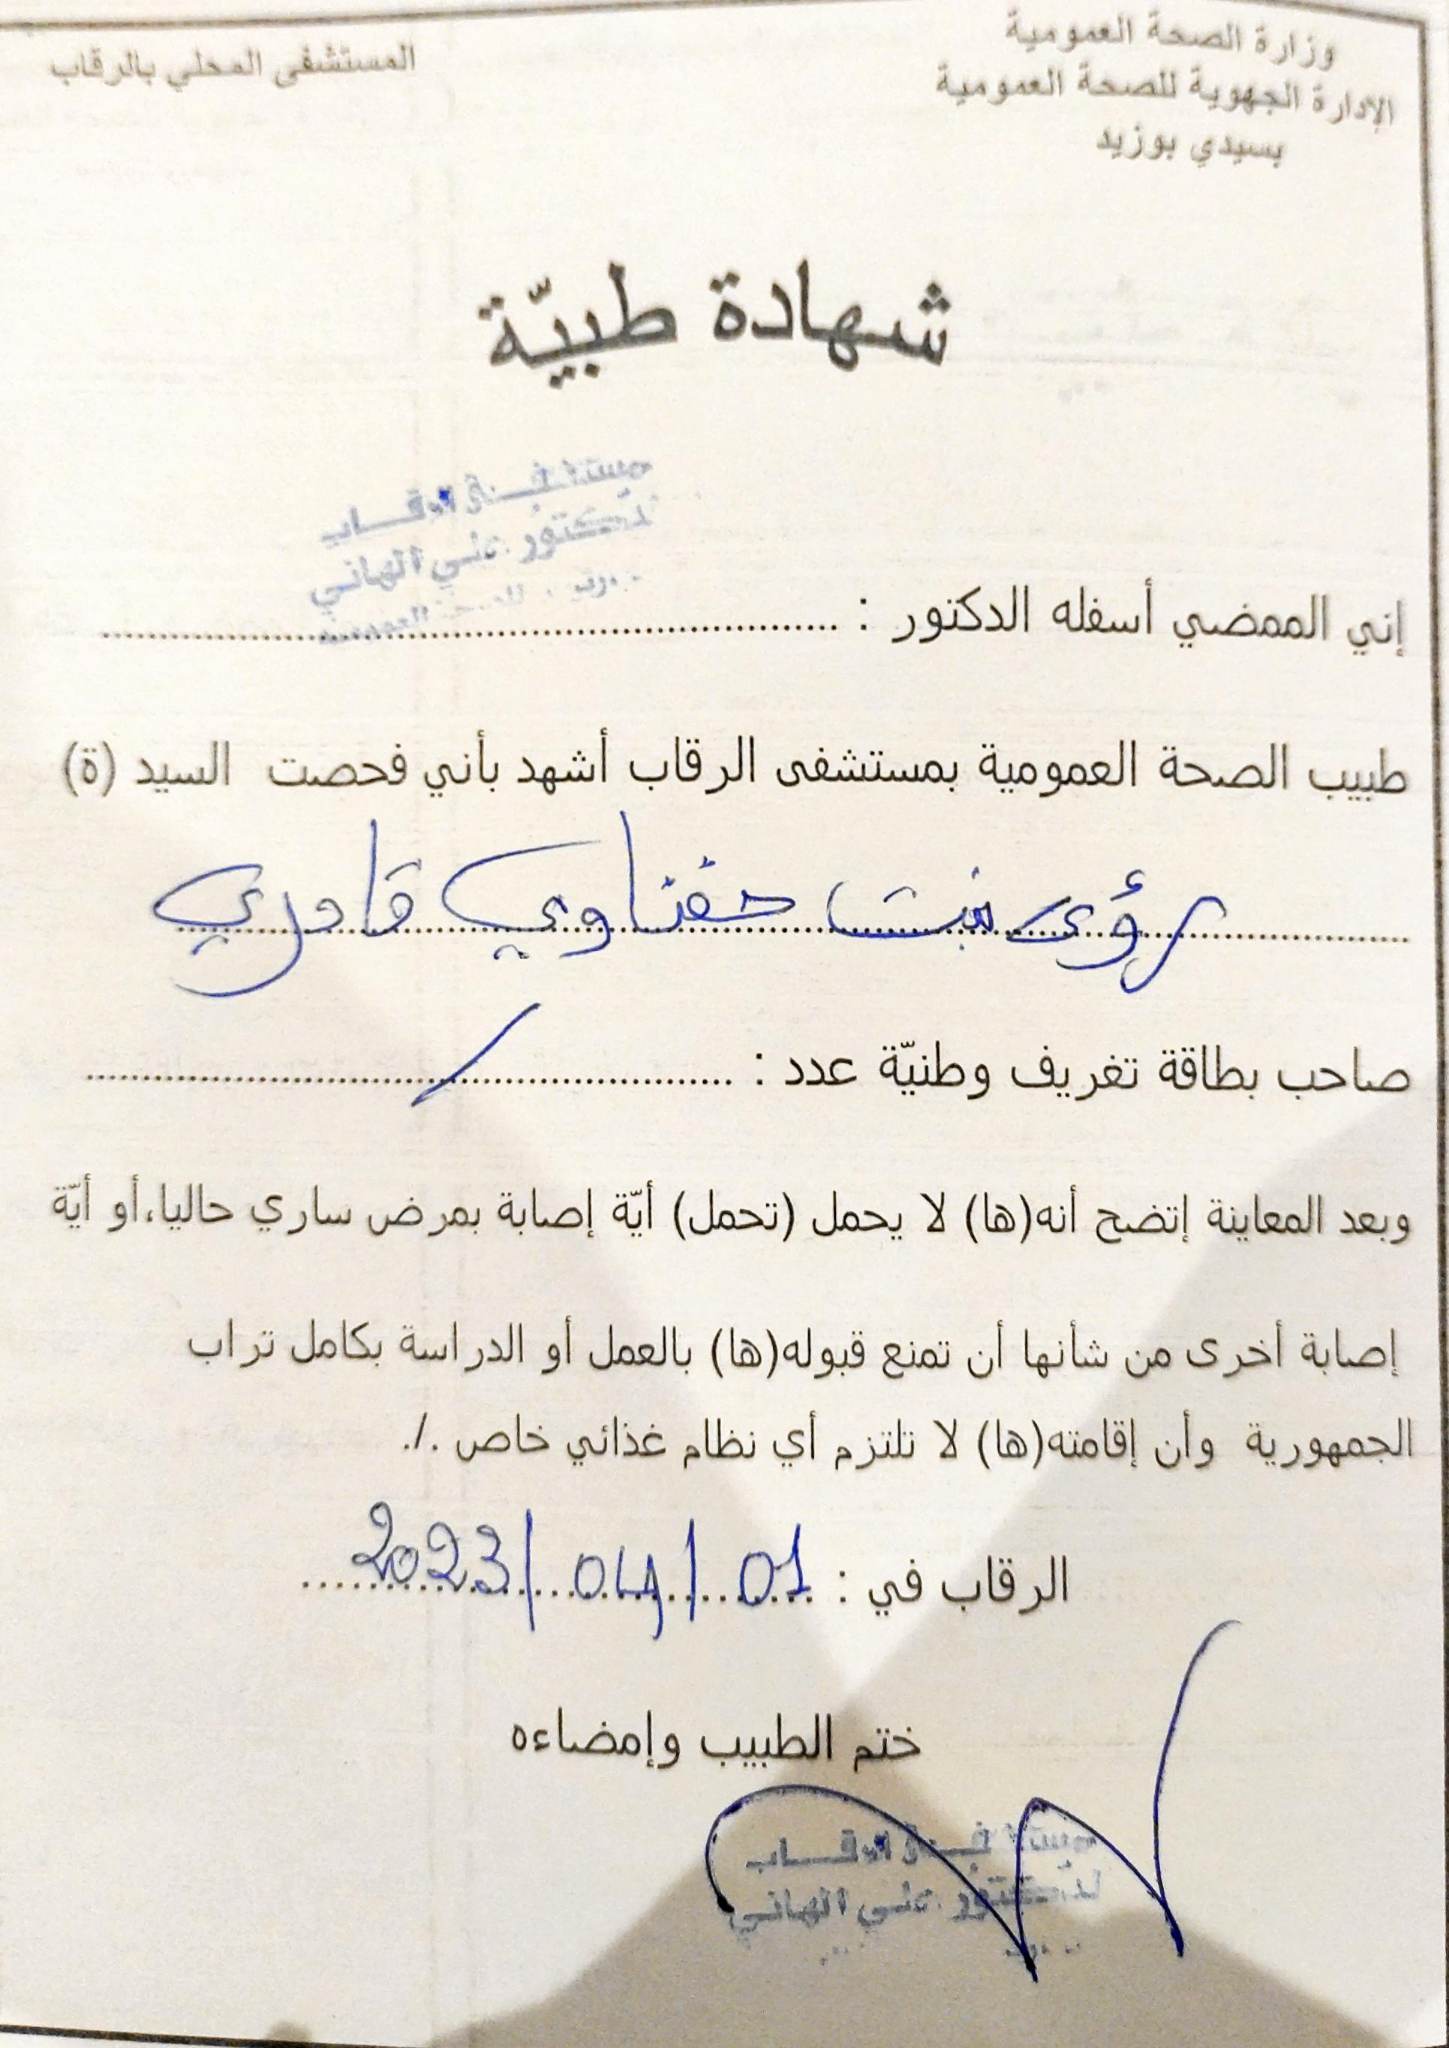 وزارة الصحة العمومية
الإدارة الجهوية للصحة العمومية
بسيدي بوزيد
المستشفى المحلي بالرقاب
شهادة طبيّة
الدكتور علي الهاني
إني الممضي أسفله الدكتور :
طبيب الصحة العمومية بمستشفى الرقاب أشهد بأني فحصت السيد (ة)
رؤى بنت حفناوي قادري
صاحب بطاقة تغريف وطنيّة عدد : /
وبعد المعاينة إتضح أنه(ها) لا يحمل (تحمل) أيّة إصابة بمرض ساري حاليا،أو أيّة
إصابة أخرى من شأنها أن تمنع قبوله(ها) بالعمل أو الدراسة بكامل تراب
الجمهورية وأن إقامته(ها) لا تلتزم أي نظام غذائي خاص ./.
الرقاب في : 01/04/2023
ختم الطبيب وإمضاءه
الدكتور علي الهاني